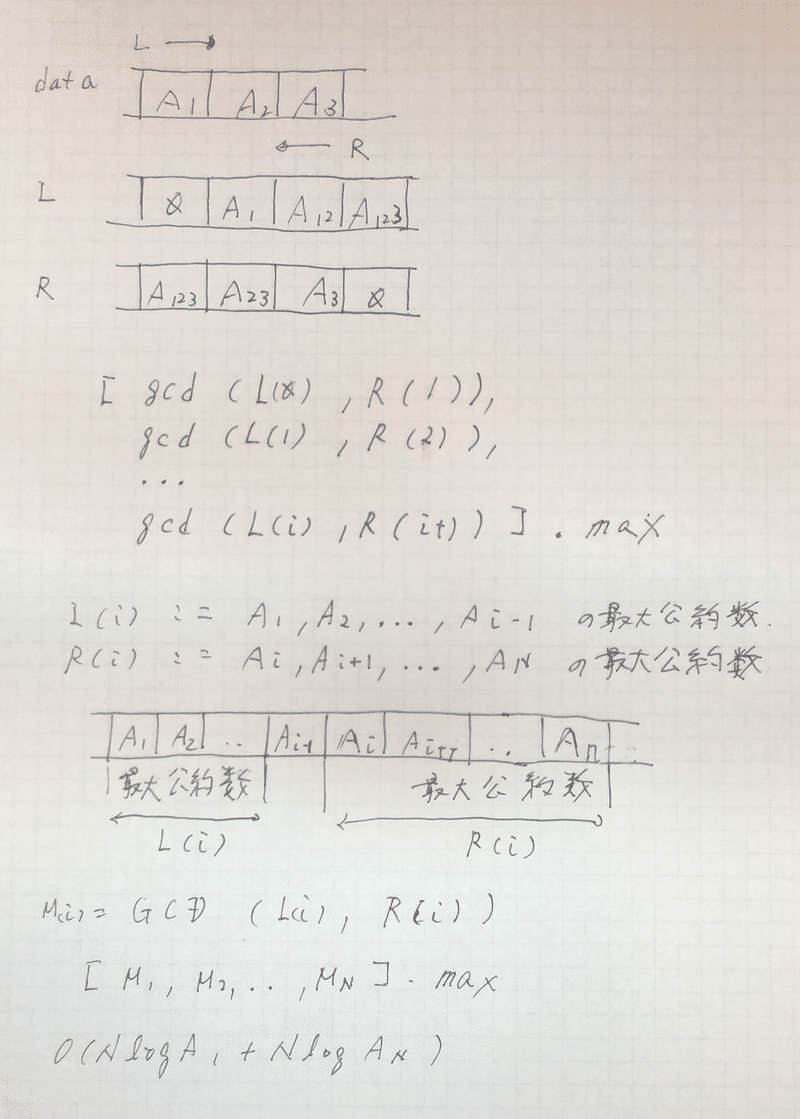 L →
data A1 A2 A3
← R
L 0 A1 A12 A123
R A123 A23 A3 0
[ gcd (L(0), R(1)),
gcd (L(1), R(2)),
...
gcd (L(i), R(i+)) ] . max
L(i) := A1, A2, ..., Ai-1 の最大公約数.
R(i) := Ai, Ai+1, ..., AN の最大公約数
A1 A2 .. Ai-1 Ai Ai+1 .. An
最大公約数 最大公約数
L(i) R(i)
M(i) = GCD (L(i), R(i))
[ M1, M2, .., MN ] . max
O(N log A1 + N log AN)